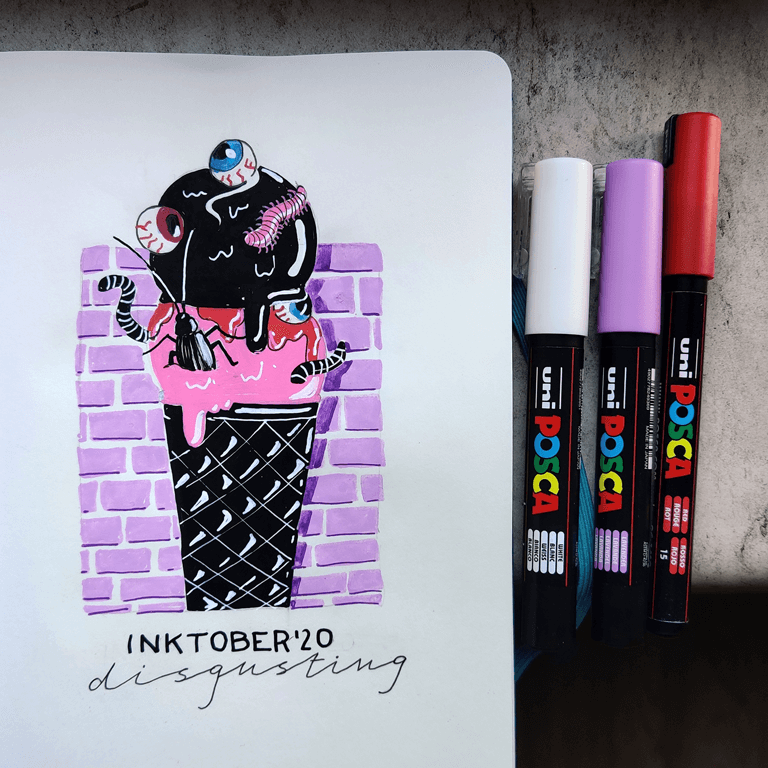 INKTOBER'20
disgusting
uni POSCA
WHITE
BLANC
WEISS
BIANCO
BLANCO
uni POSCA
uni POSCA
RED ROSSO
ROUGE ROJO
ROT 15